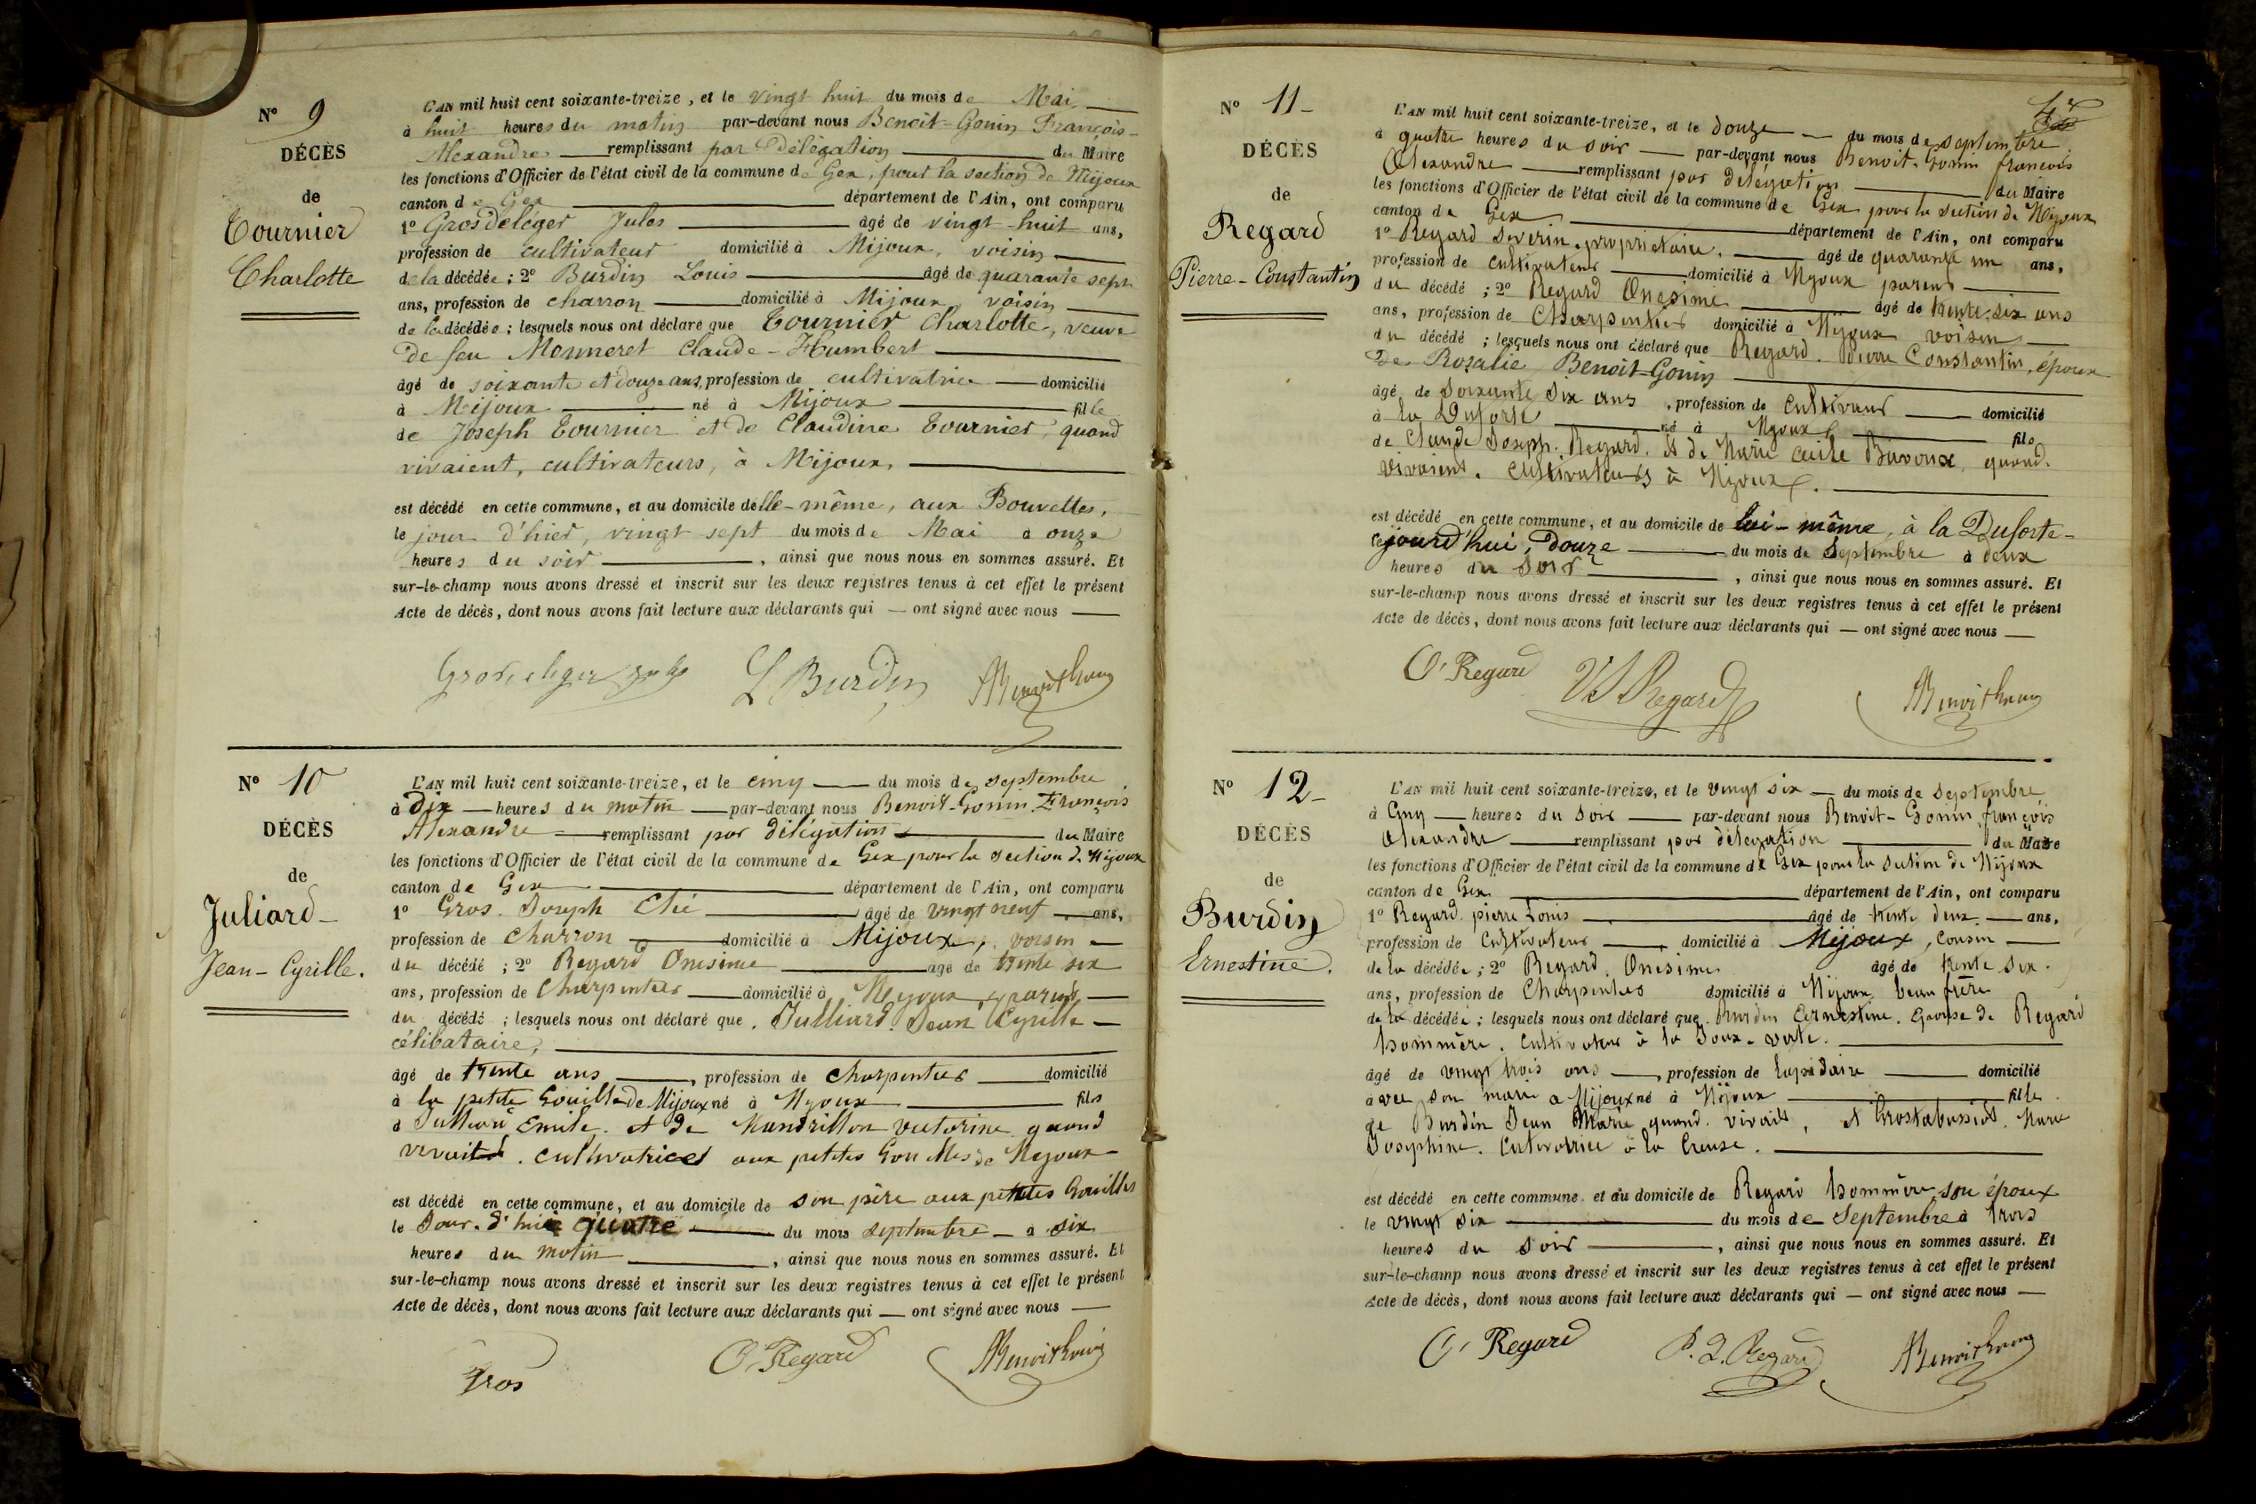 N° 9
DÉCÈS
de
Tournier
Charlotte
L'AN mil huit cent soixante-treize, et le vingt huit du mois de Mai
à huit heures du matin par-devant nous Benoit-Gonin François-
Alexandre remplissant par délégation du Maire
les fonctions d'Officier de l'état civil de la commune de Gex, pour la section de Mijoux
canton de Gex département de l'Ain, ont comparu
1° Grosdeléger Jules âgé de vingt-huit ans,
profession de cultivateur domicilié à Mijoux, voisin
de la décédée; 2° Burdin Louis âgé de quarante sept
ans, profession de charron domicilié à Mijoux, voisin
de la décédée; lesquels nous ont déclaré que Tournier Charlotte, veuve
de feu Monneret Claude-Humbert
âgé de soixante et douze ans, profession de cultivatrice domicilié
à Mijoux né à Mijoux fille
de Joseph Tournier et de Claudine Tournier, quand
vivaient, cultivateurs, à Mijoux,
est décédé en cette commune, et au domicile d'elle-même, aux Bouvettes,
le jour d'hier, vingt sept du mois de Mai à onze
heures du soir, ainsi que nous nous en sommes assuré. Et
sur-le-champ nous avons dressé et inscrit sur les deux registres tenus à cet effet le présent
Acte de décès, dont nous avons fait lecture aux déclarants qui — ont signé avec nous —
L Burdin ABenoitGonin
N° 10
DÉCÈS
de
Juliard-
Jean-Cyrille.
L'AN mil huit cent soixante-treize, et le cinq du mois de septembre
à dix heures du matin par-devant nous Benoit-Gonin François
Alexandre remplissant par délégation du Maire
les fonctions d'Officier de l'état civil de la commune de Gex pour la section de Mijoux
canton de Gex département de l'Ain, ont comparu
1° Gros Joseph Elié âgé de vingt neuf ans,
profession de charron domicilié à Mijoux, voisin
du décédé; 2° Regard Onésime âgé de trente six
ans, profession de Charpentier domicilié à Mijoux, parent
du décédé; lesquels nous ont déclaré que Julliard Jean Cyrille
célibataire,
âgé de trente ans, profession de charpentier domicilié
à la petite Gouille de Mijoux né à Mijoux fils
d Julliard Emile. et de Mandrillon victorine quand
vivait. cultivatrice aux petites Gouilles de Mijoux
est décédé en cette commune, et au domicile de son père aux petites Gouilles
le Jour d'hier quatre du mois septembre à six
heures du matin, ainsi que nous nous en sommes assuré. Et
sur-le-champ nous avons dressé et inscrit sur les deux registres tenus à cet effet le présent
Acte de décès, dont nous avons fait lecture aux déclarants qui — ont signé avec nous —
Gros O, Regard ABenoitGonin
N° 11
DÉCÈS
de
Regard
Pierre-Constantin
L'AN mil huit cent soixante-treize, et le douze du mois de septembre
à quatre heures du soir par-devant nous Benoit-Gonin françois
Alexandre remplissant par délégation du Maire
les fonctions d'Officier de l'état civil de la commune de Gex pour la section de Mijoux
canton de Gex département de l'Ain, ont comparu
1° Regard Severin, propriétaire, âgé de quarante un ans,
profession de cultivateur domicilié à Mijoux parent
du décédé; 2° Regard Onésime âgé de trente-six ans
ans, profession de Charpentier domicilié à Mijoux voisin
du décédé; lesquels nous ont déclaré que Regard. Pierre Constantin, époux
de Rosalie Benoit-Gonin
âgé de soixante six ans, profession de cultivateur domicilié
à la Duforte né à Mijoux fils
de Claude Joseph. Regard. et de Marie Cécile quand
vivaient. cultivateurs à Mijoux.
est décédé en cette commune, et au domicile de lui-même, à la Duforte-
cejourd'hui, douze du mois de septembre à deux
heures du soir, ainsi que nous nous en sommes assuré. Et
sur-le-champ nous avons dressé et inscrit sur les deux registres tenus à cet effet le présent
Acte de décès, dont nous avons fait lecture aux déclarants qui — ont signé avec nous —
O, Regard VS Regard ABenoitGonin
N° 12
DÉCÈS
de
Burdin
Ernestine.
L'AN mil huit cent soixante-treize, et le vingt six du mois de septembre
à Cinq heures du soir par-devant nous Benoit-Gonin françois
Alexandre remplissant par délégation du Maire
les fonctions d'Officier de l'état civil de la commune de Gex pour la section de Mijoux
canton de Gex département de l'Ain, ont comparu
1° Regard pierre Louis âgé de trente deux ans,
profession de cultivateur domicilié à Mijoux, cousin
de la décédée; 2° Regard. Onésime âgé de trente six.
ans, profession de Charpentier domicilié à Mijoux beau frère
de la décédée; lesquels nous ont déclaré que Burdin Ernestine. Epouse de Regard
cultivateur à la Joux-verte.
âgé de vingt trois ans, profession de lapidaire domicilié
avec son mari à Mijoux né à Mijoux fille
de Burdin Jean Marie, quand. vivait, et Grostabussiat. Marie
Josephine. Cultivatrice à la Creuse.
est décédé en cette commune, et au domicile de Regard son époux
le vingt six du mois de septembre à trois
heures du soir, ainsi que nous nous en sommes assuré. Et
sur-le-champ nous avons dressé et inscrit sur les deux registres tenus à cet effet le présent
Acte de décès, dont nous avons fait lecture aux déclarants qui — ont signé avec nous —
O, Regard P. L. Regard ABenoitGonin